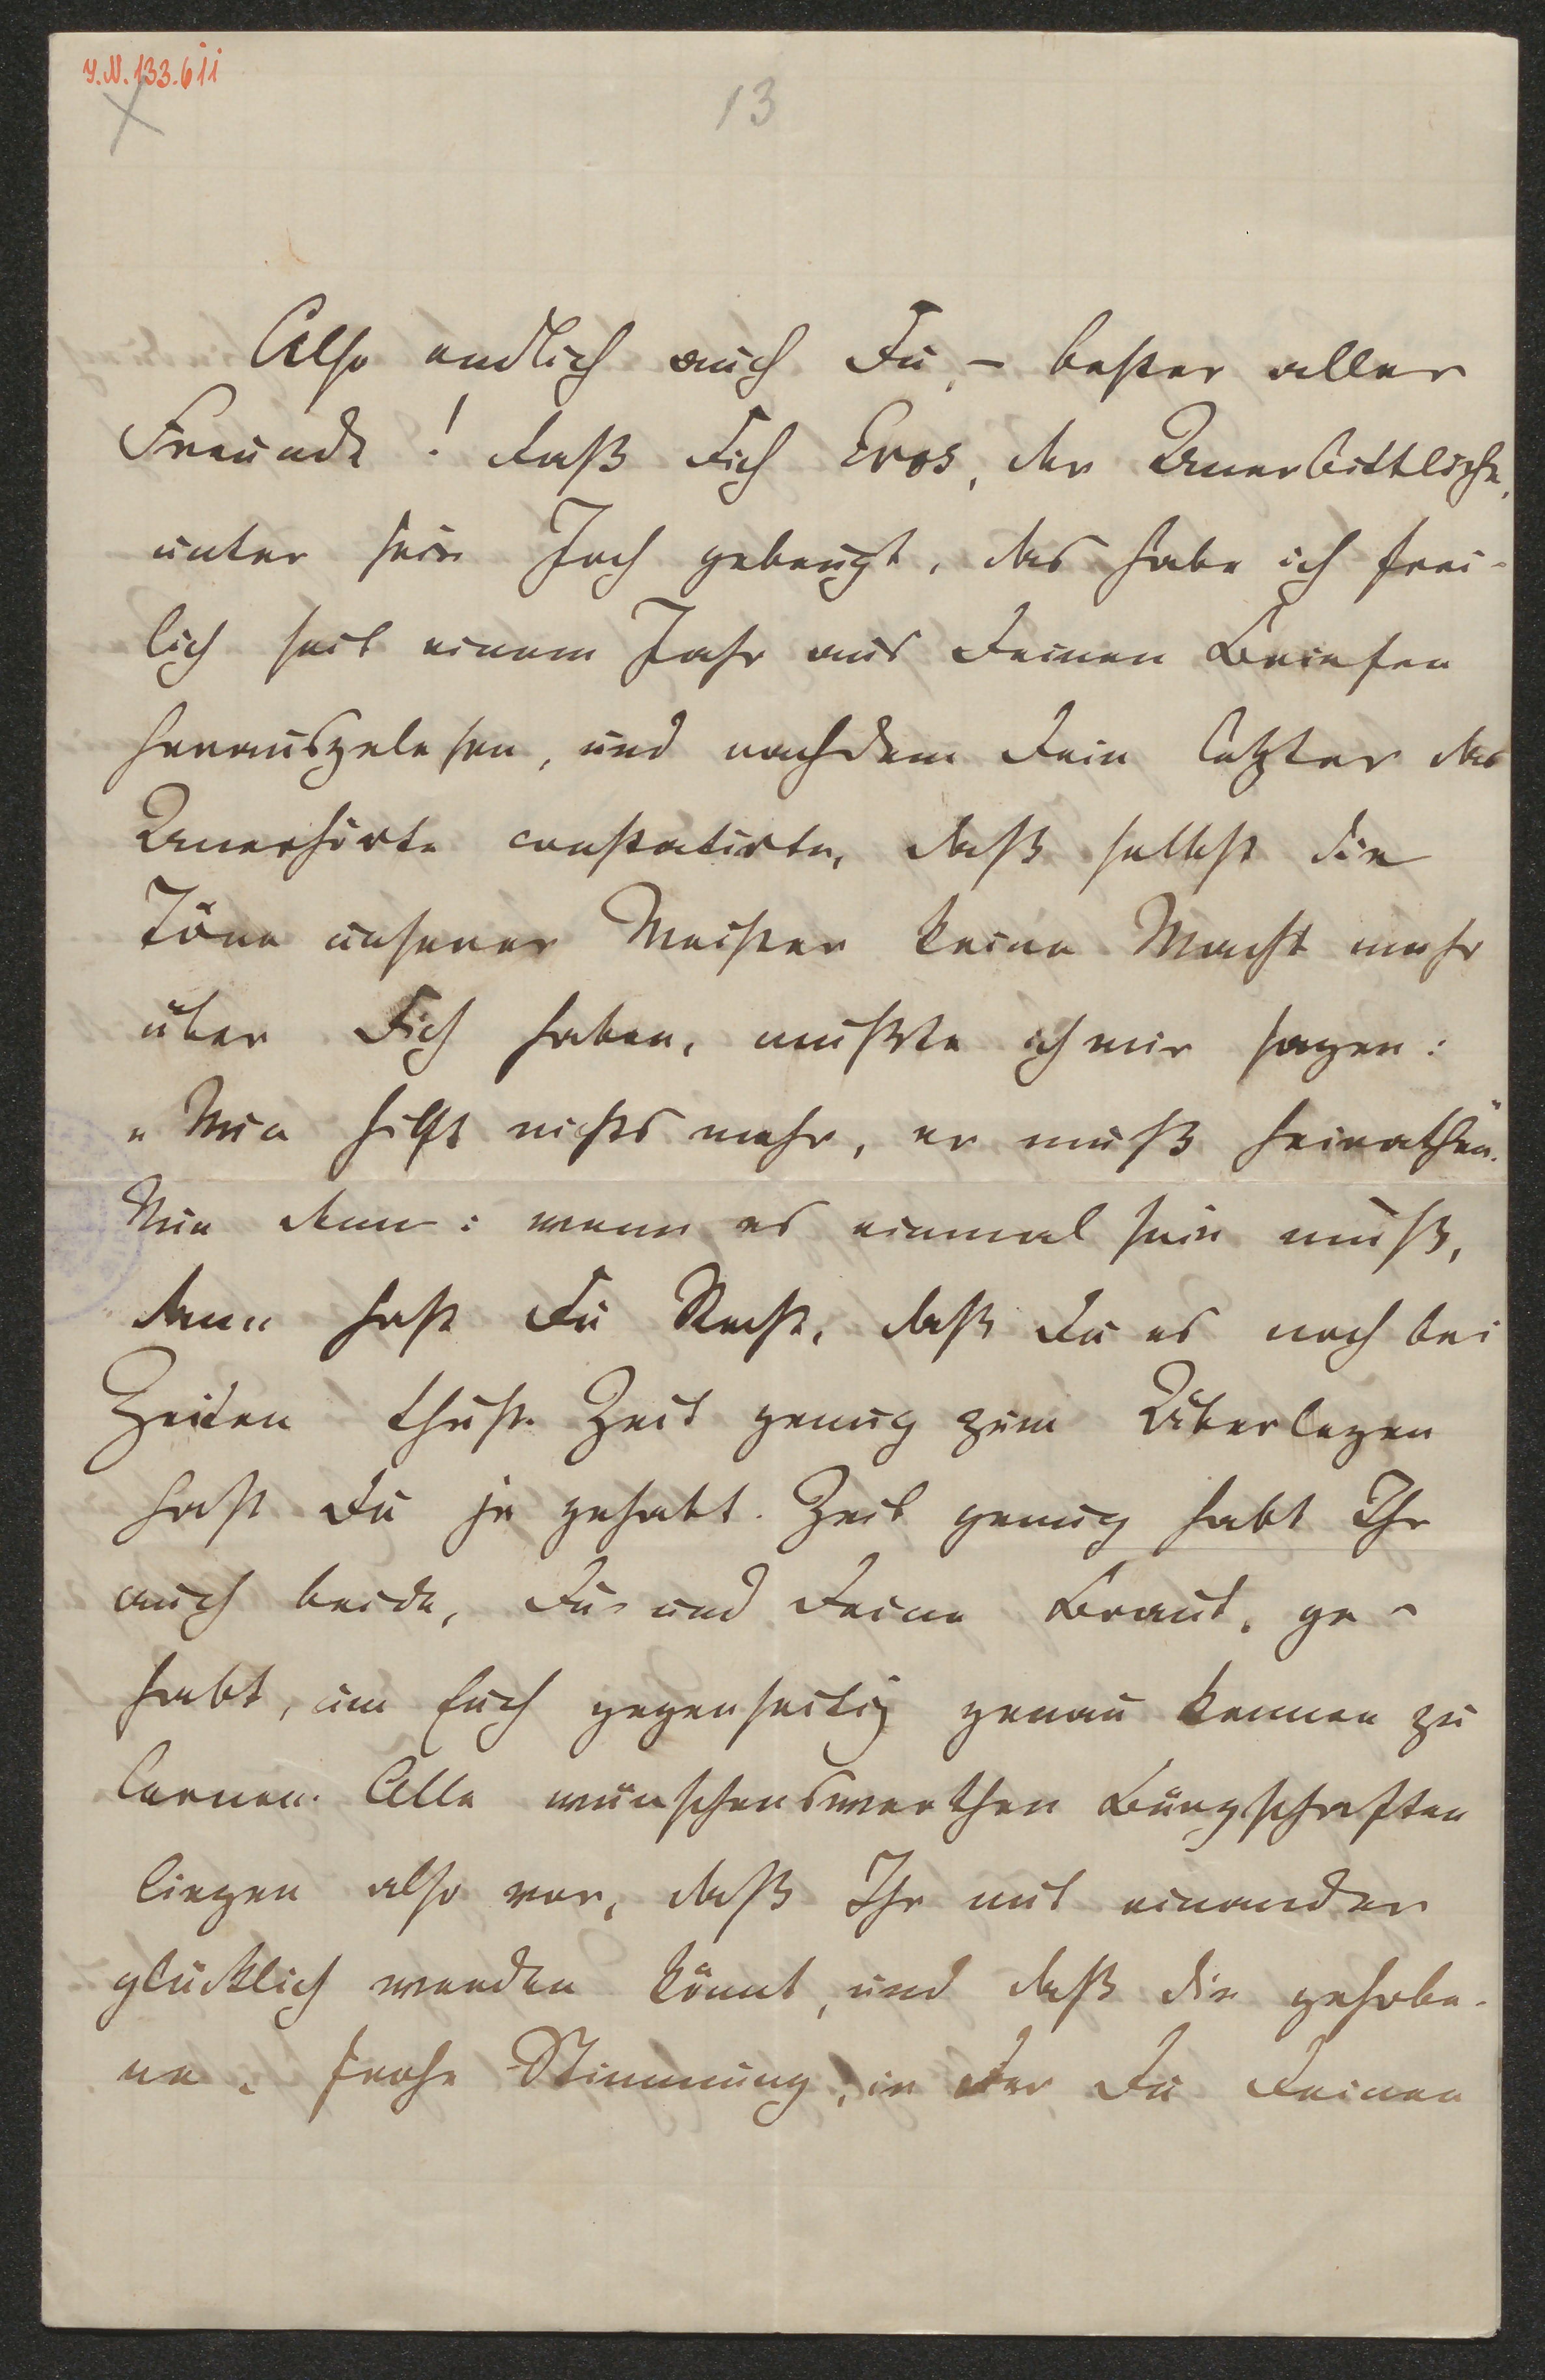 J.N. 133.611
13
Also endlich auch Du, – bester aller
Freunde! Daß Dich Eros, der Unerbittliche,
unter sein Joch gebeugt, das habe ich frei-
lich seit einem Jahr aus Deinen Briefen
herausgelesen, und nachdem Dein letzter das
Unerhörte constatirte, daß selbst die
Töne unserer Meister keine Macht mehr
über Dich haben, mußte ich mir sagen:
„Nun hilft nichts mehr, er muß heirathen."
Nun denn: wenn es einmal sein muß,
dann hast Du Recht, daß Du es noch bei
Zeiten thust. Zeit genug zum Überlegen
hast Du ja gehabt. Zeit genug habt Ihr
auch beide, Du und Deine Braut, ge-
habt, um Euch gegenseitig genau kennen zu
lernen. Alle wünschenswerthen Bürgschaften
liegen also vor, daß Ihr mit einander
glücklich werden könnt, und daß die gehobe-
ne, frohe Stimmung, in der Du Deinen